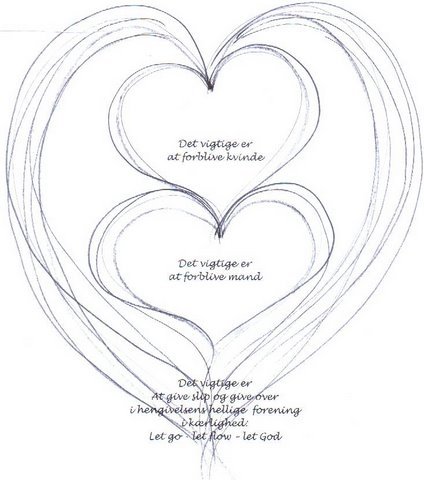 Det vigtige er
at forblive kvinde
Det vigtige er
at forblive mand
Det vigtige er
At give slip og give over
i hengivelsens hellige forening
i kærlighed.
Let go - let flow – let God